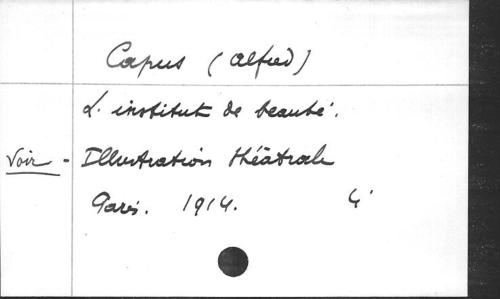 Capus (Alfred)
L'institut de beauté.
Voir - Illustration théâtrale
Paris. 1914. 4°